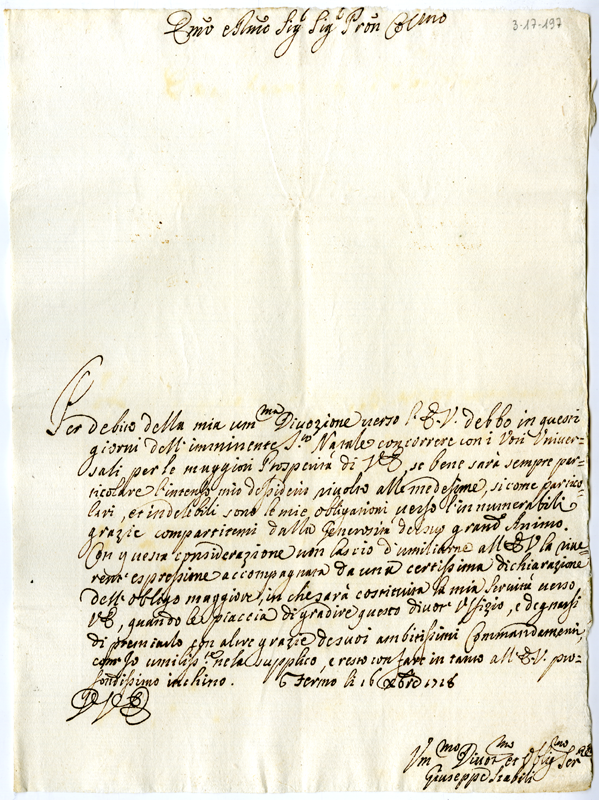 Emo e Rmo Sigr Sigr Pron Colmo
3-17-197
Per debito della mia umma Divozione verso l'E.V. debbo in questi
giorni dell'imminente Sto Natale concorrere con i Voti Univer-
sali per le maggiori Prosperità di V.E., se bene sarà sempre par-
ticolare l'intenso mio desiderio rivolto alle medesime, si come partico-
lari, et indelebili sono le mie obligazioni verso l'innumerabili
grazie compartitemi dalla Generosità del suo grand'Animo.
Con questa considerazione d'umiliarne all'E.V. la rive-
rente espressione accompagnata da una certissima dichiarazione
dell'obligo maggiore, in che sarà costituita la mia Servitù verso
V.E., quando le piaccia di gradire questo divoto Uffizio, e degnarsi
di premiarlo con altre grazie de suoi ambitissimi Commandamenti,
come Io umilisste nela supplico, e resto con fare in tanto all'E.V. pro-
fondissimo inchino. Fermo li 16 Xbre 1718
D V E
Ummo Divotmo et Obligmo Serre
Giuseppe Scaboli